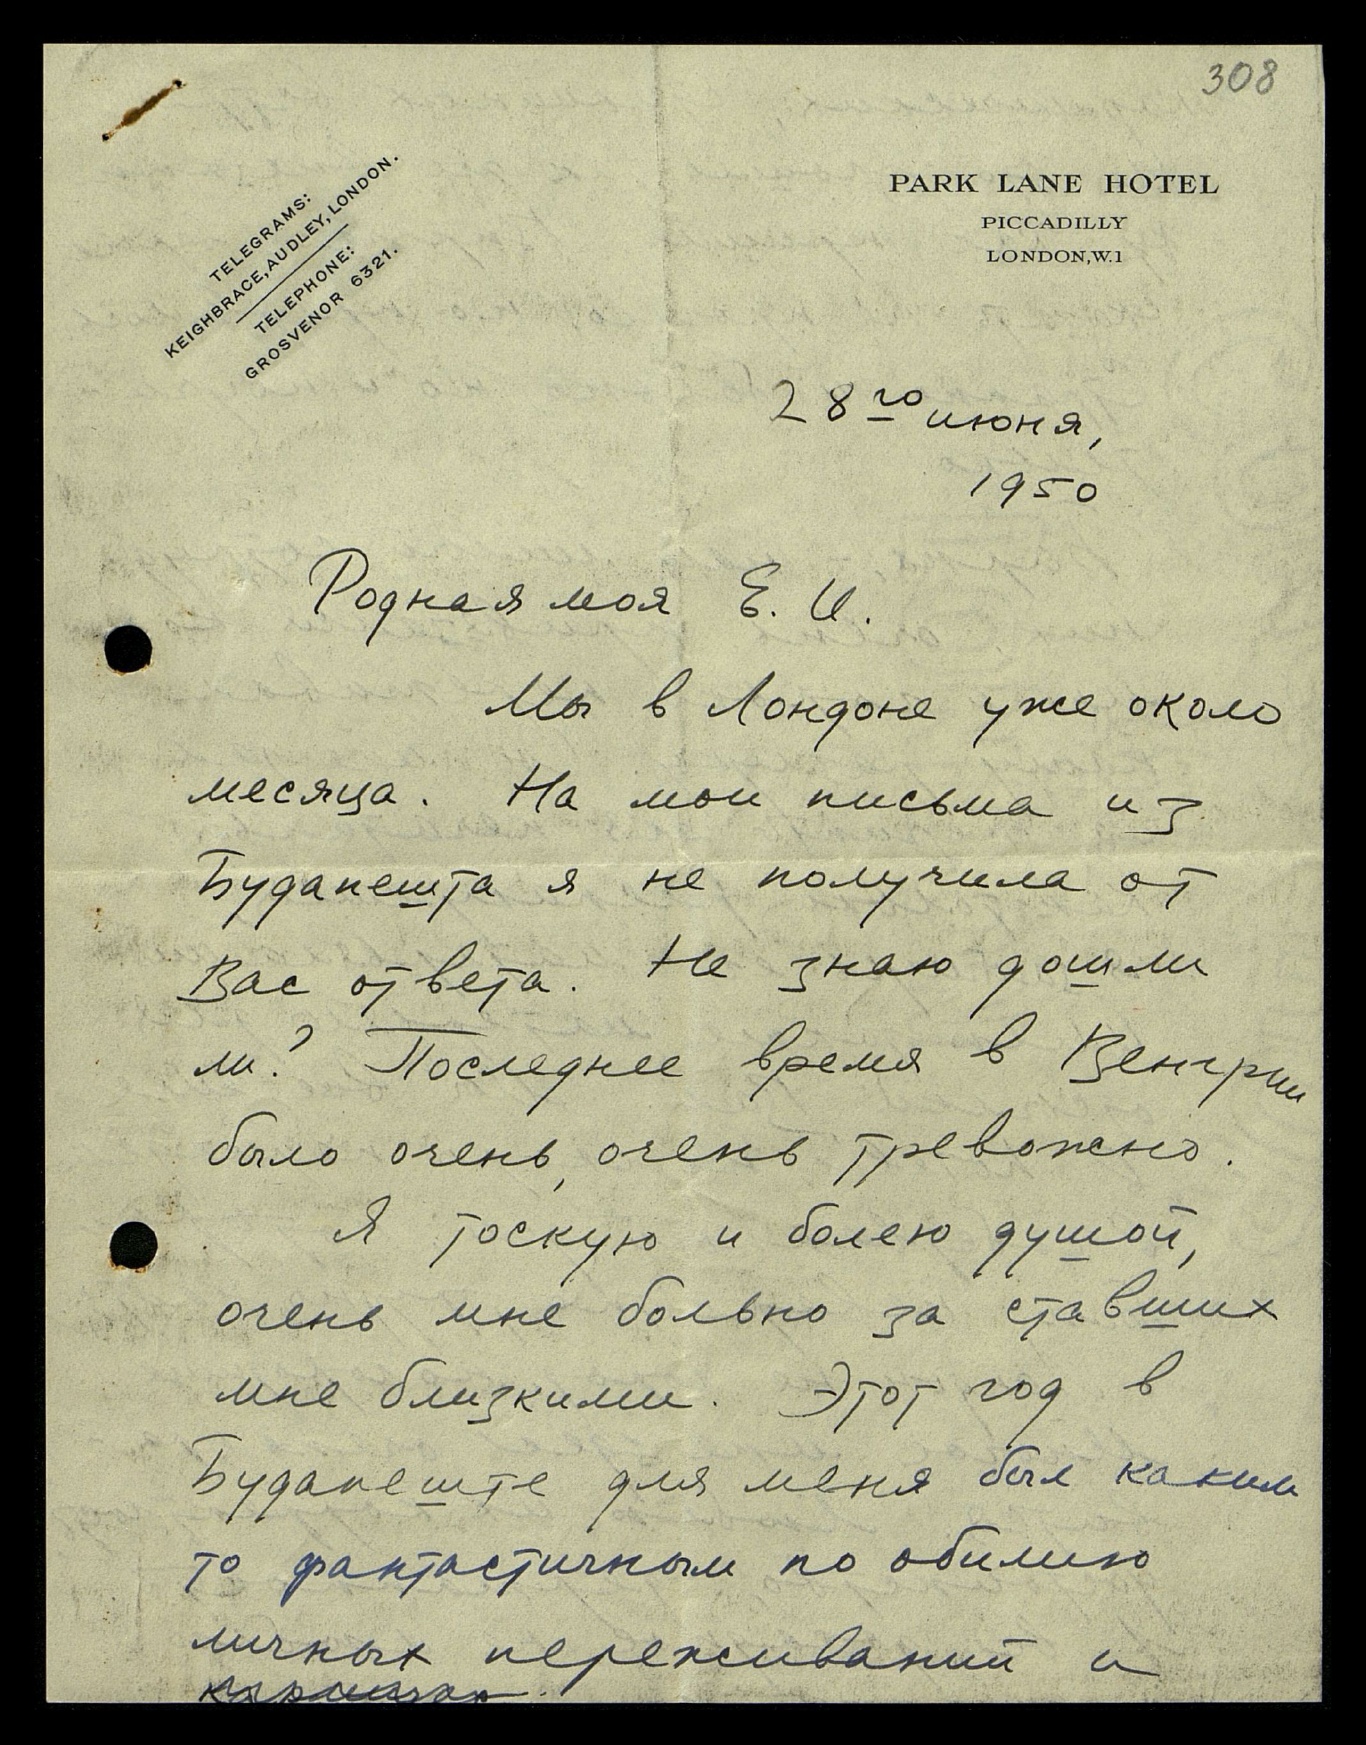 308
TELEGRAMS:
KEIGHBRACE, AUDLEY, LONDON.
TELEPHONE:
GROSVENOR 6321.
PARK LANE HOTEL
PICCADILLY
LONDON, W.1
28го июня,
1950
Родная моя Е. И.
Мы в Лондоне уже около
месяца. На мои письма из
Будапешта я не получила от
Вас ответа. Не знаю дошли
ли? Последнее время в Венгрии
было очень, очень тревожно.
Я тоскую и болею душой,
очень мне больно за ставших
мне близкими. Этот год в
Будапеште для меня был каким
то фантастичным по обилию
личных переживаний и